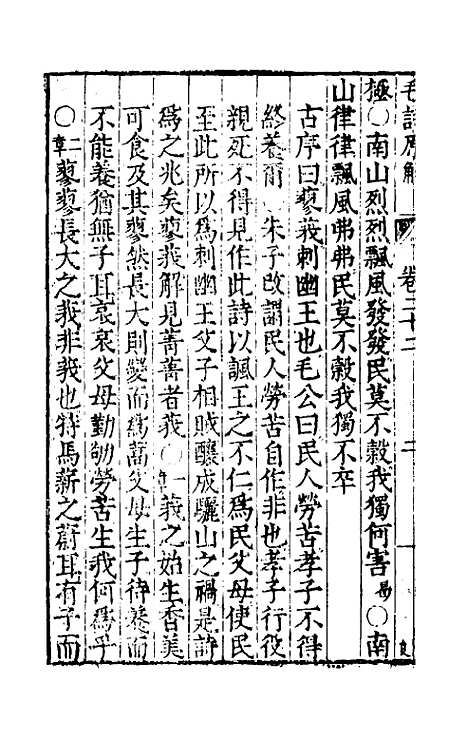 毛詩原解 卷二十二
極○南山烈烈飄風發發民莫不穀我獨何害易○南
山律律飄風弗弗民莫不穀我獨不卒
古序曰蓼莪刺幽王也毛公曰民人勞苦孝子不得
終養爾 朱子改謂民人勞苦自作非也孝子行役
親死不得見作此詩以諷王之不仁爲民父母使民
至此所以爲刺幽王父子相賊釀成驪山之禍是詩
爲之兆矣蓼莪解見菁菁者莪○一章莪之始生香美
可食及其蓼然長大則變而爲蒿父母生子待養而
不能養猶無子耳哀哀父母勤劬勞苦生我何爲乎
○二章蓼蓼長大之莪非莪也特馬薪之蔚耳有子而